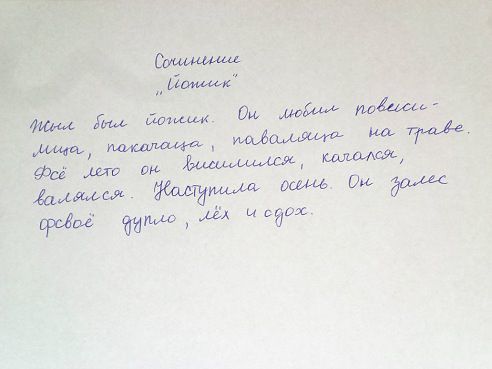 Сочинение
"Йожик"
Жыл был йожик. Он любил повеси-
лица, пакачаца, паваляца на траве.
Фсё лето он висилился, качался,
валялся. Наступила осень. Он залес
фсваё дупло, лёх и сдох.